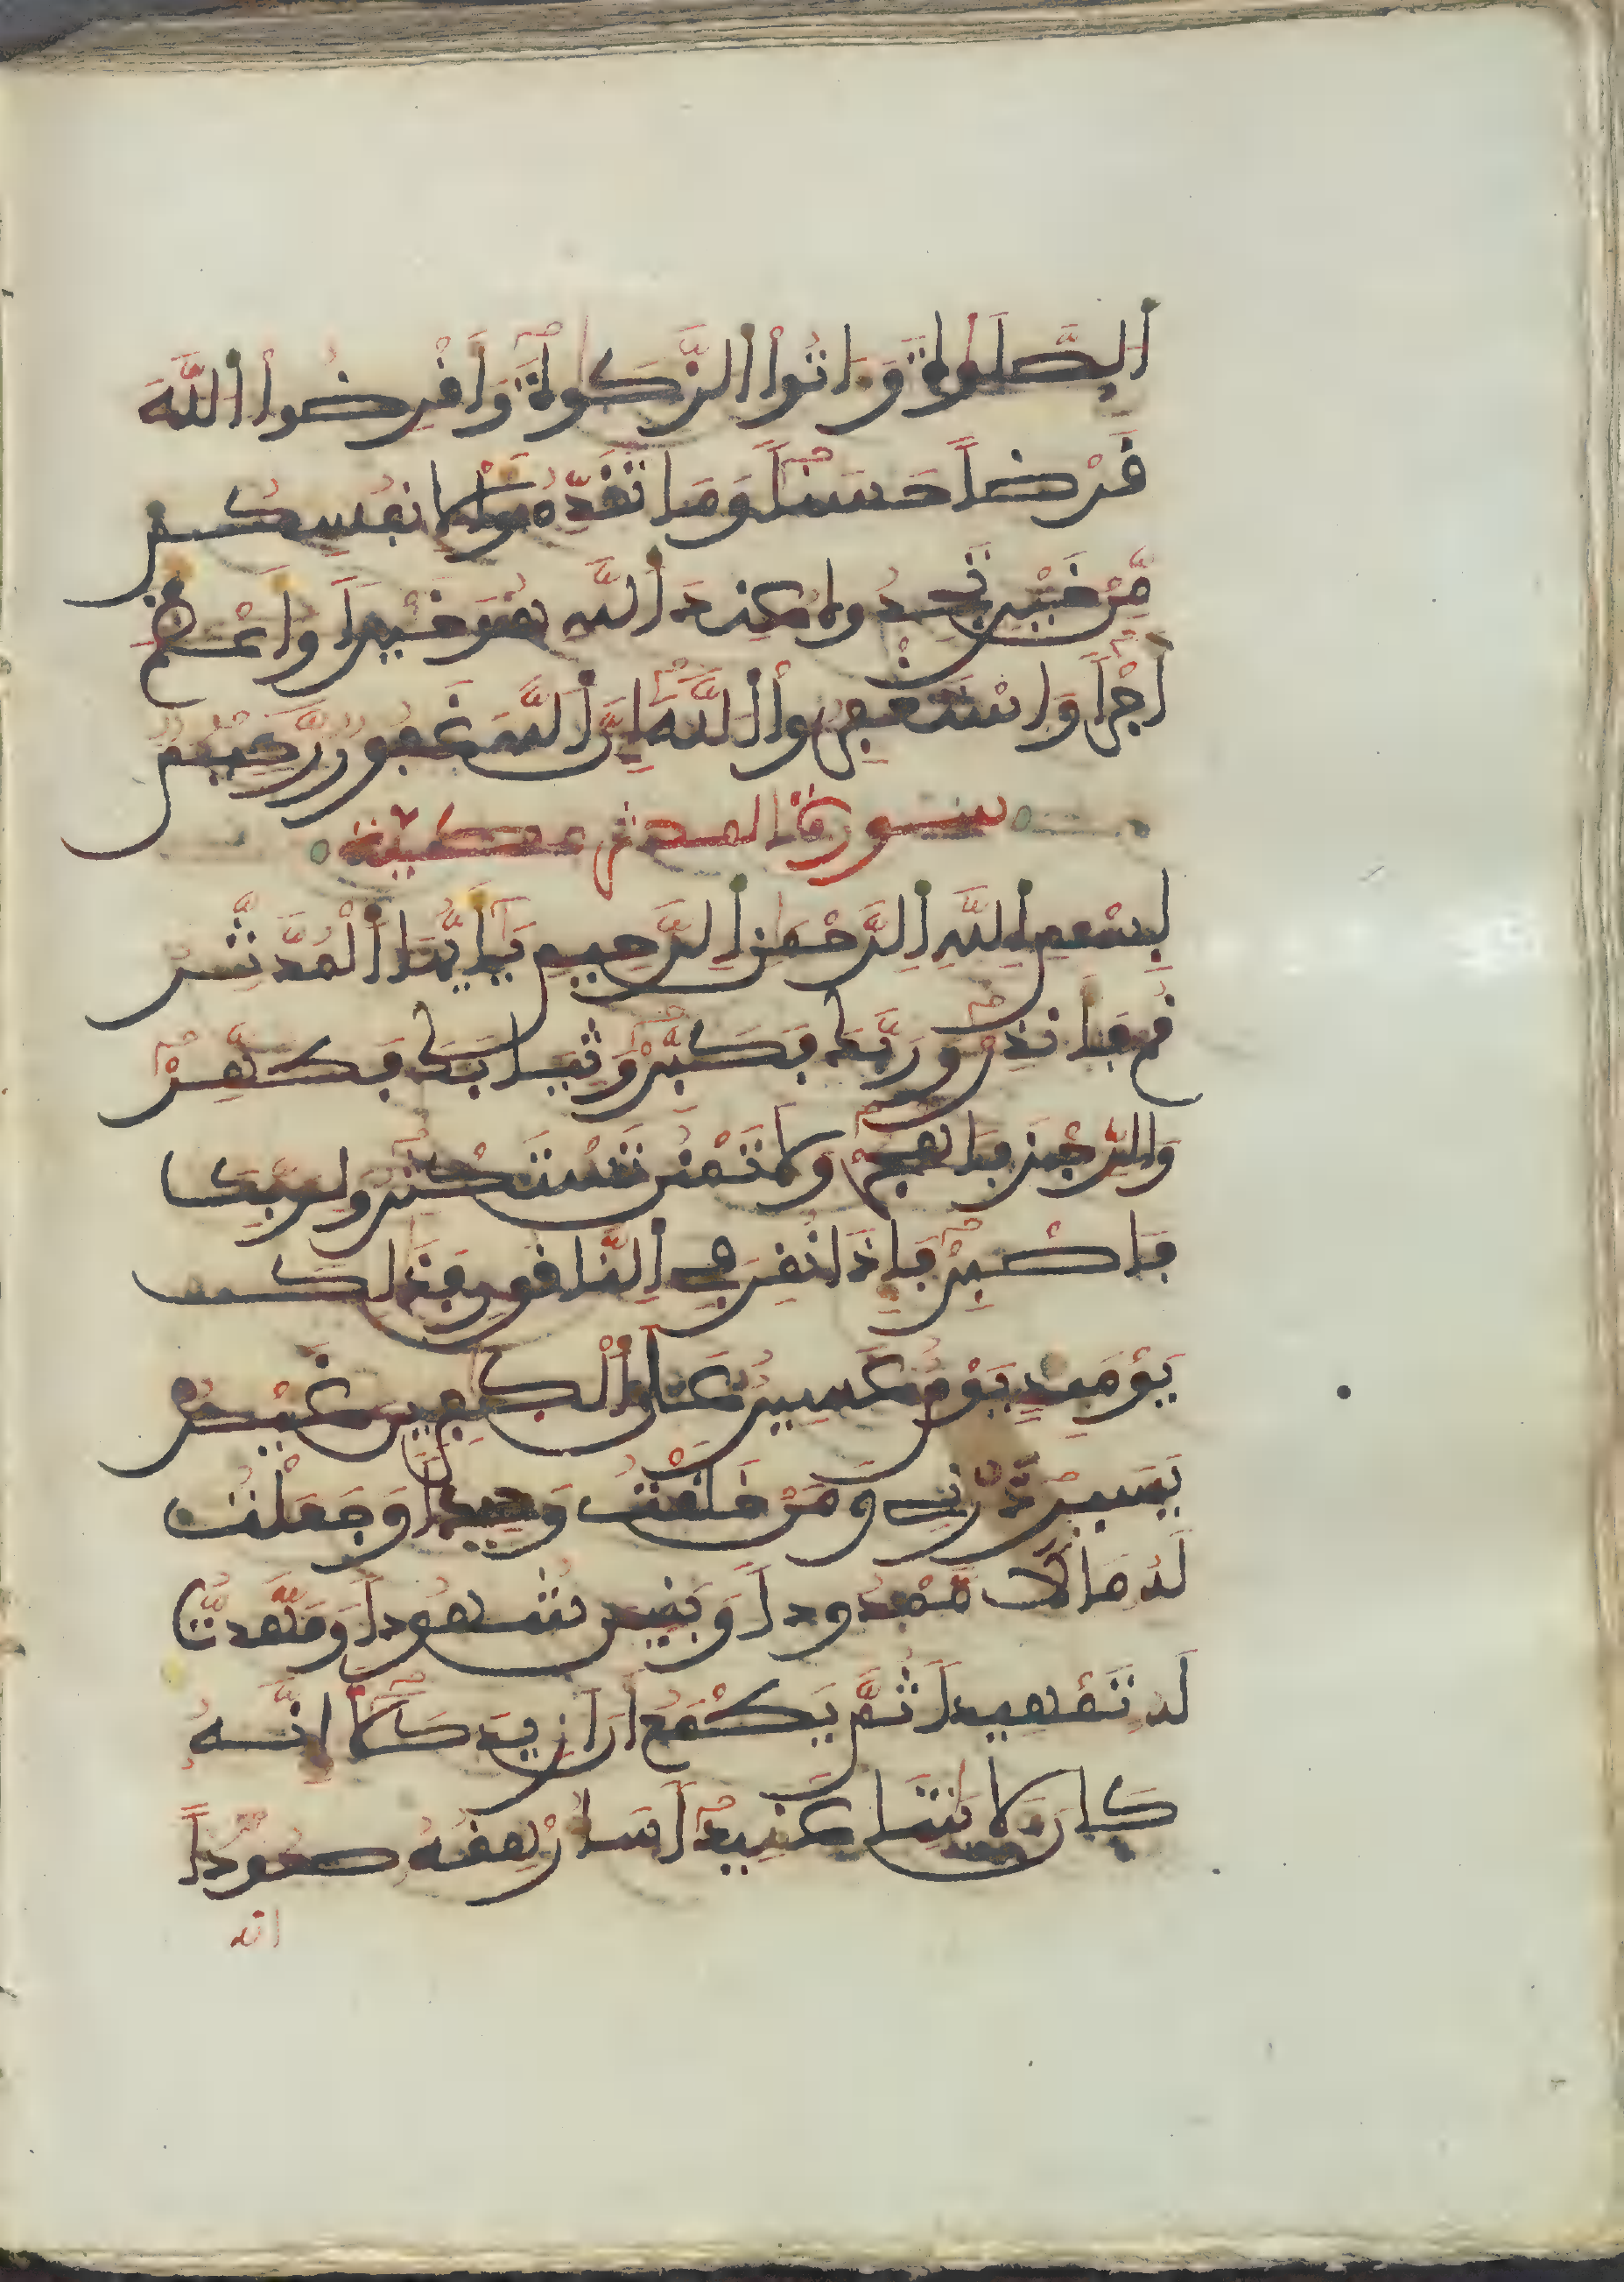 اَ۬لصَّلَوٰةَ وَءَاتُواْ اُ۬لزَّكَوٰةَ وَأَقْرِضُواْ اُ۬للَّهَ
قَرْضاً حَسَناً وَمَا تُقَدِّمُواْ لِأَنفُسِكُم
مِّنْ خَيْرٍ تَجِدُوهُ عِندَ اَ۬للَّهِ هُوَ خَيْراً وَأَعْظَمَ
أَجْراً وَاسْتَغْفِرُواْ اُ۬للَّهَ إِنَّ اَ۬للَّهَ غَفُورٌ رَّحِيمٌ
سورة المدثر مكية
بِسْمِ اِ۬للَّهِ اِ۬لرَّحْمَٰنِ اِ۬لرَّحِيمِ يَٰأَيُّهَا اَ۬لْمُدَّثِّرُ
قُمْ فَأَنذِرْ وَرَبَّكَ فَكَبِّرْ وَثِيَابَكَ فَطَهِّرْ
وَالرِّجْزَ فَاهْجُرْ وَلَا تَمْنُن تَسْتَكْثِرُ وَلِرَبِّكَ
فَاصْبِرْ فَإِذَا نُقِرَ فِي اِ۬لنَّاقُورِ فَذَٰلِكَ
يَوْمَئِذٍ يَوْمٌ عَسِيرٌ عَلَى اَ۬لْكَٰفِرِينَ غَيْرُ
يَسِيرٍ ذَرْنِي وَمَنْ خَلَقْتُ وَحِيداً وَجَعَلْتُ
لَهُ مَالاً مَّمْدُوداً وَبَنِينَ شُهُوداً وَمَهَّدتُّ
لَهُ تَمْهِيداً ثُمَّ يَطْمَعُ أَنْ أَزِيدَ كَلَّا إِنَّهُ
كَانَ لِأَيَٰتِنَا عَنِيداً سَأُرْهِقُهُ صَعُوداً
انه